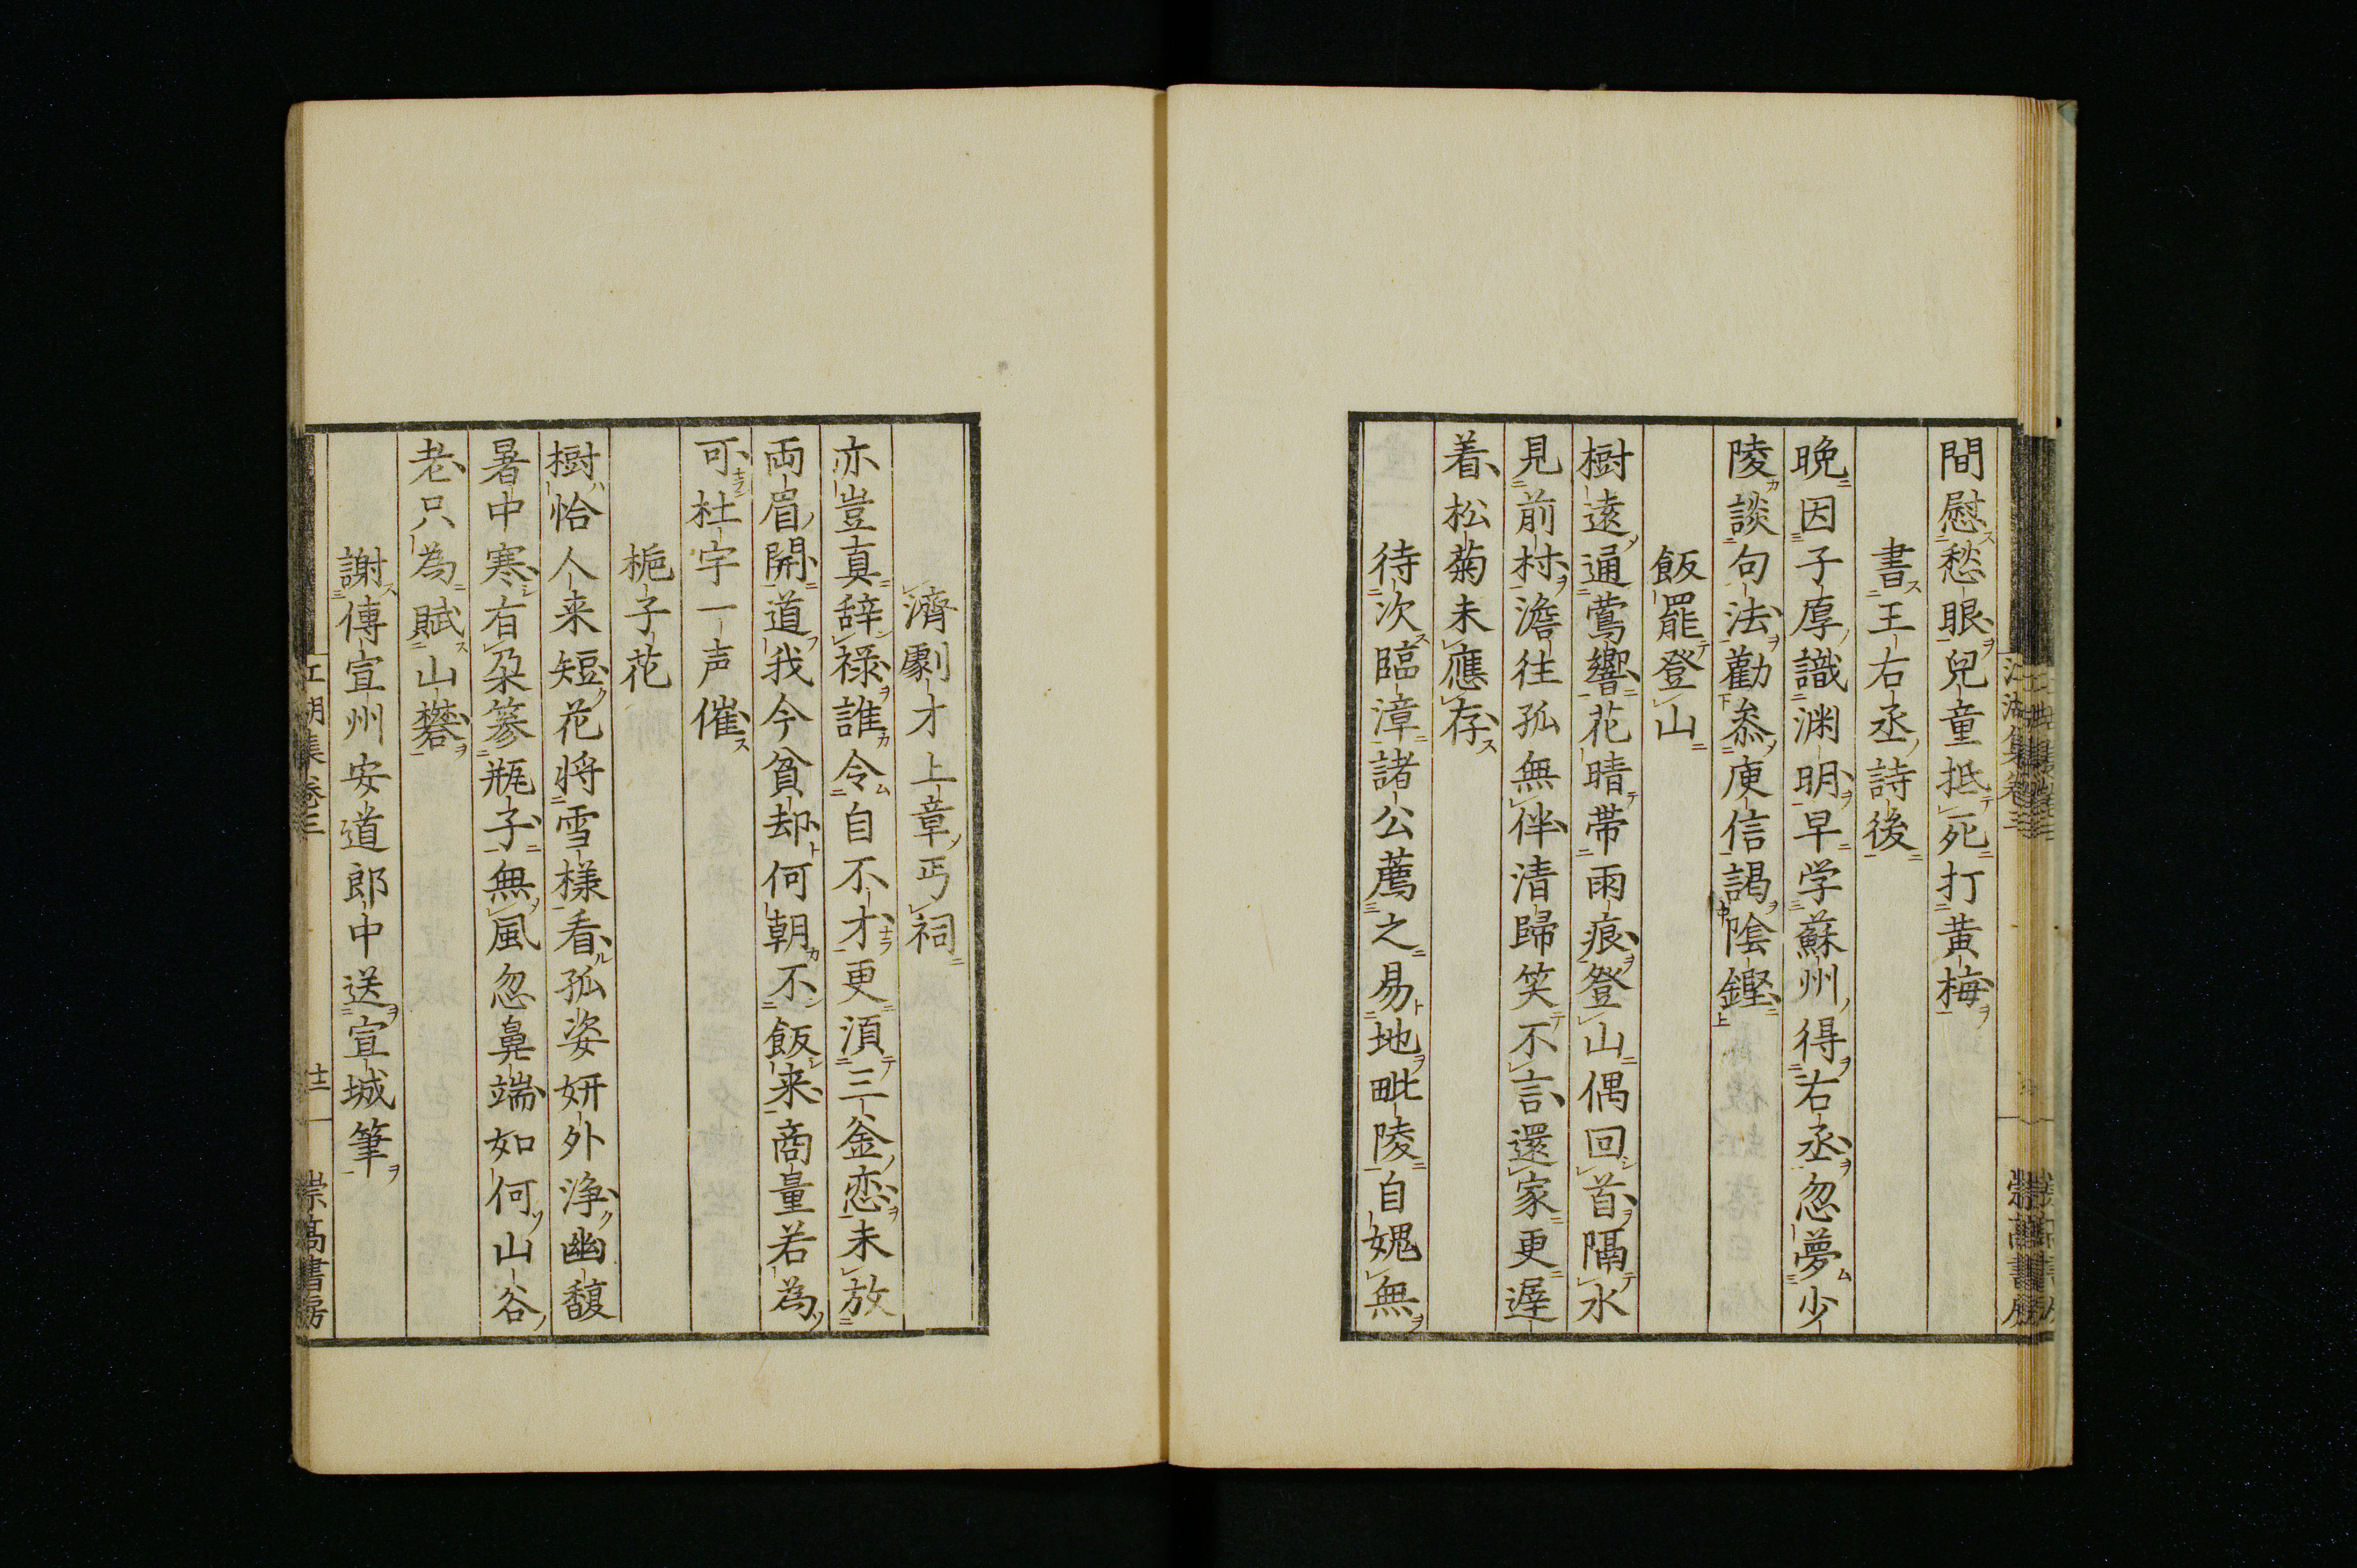 間慰愁眼兒童抵死打黄梅
書王右丞詩後
晩因子厚識渊明早学蘇州得右丞忽夢少
陵談句法勸叅庾信謁陰鏗
飯罷登山
樹遠通鶯響花晴帯雨痕登山偶回首隔水
見前村澹往孤無伴清歸笑不言還家更遅
着松菊未應存
待次臨漳諸公薦之易地毗陵自媿無
濟劇才上章丐祠
亦豈真辞禄誰令自不才更湏三釜恋未放
両眉開道我今貧却何朝不飯来商量若為
可杜宇一声催
梔子花
樹恰人来短花将雪様看孤姿妍外浄幽馥
暑中寒有朶篸瓶子無風忽鼻端如何山谷
老只為賦山礬
謝傳宣州安道郎中送宣城筆
江湖集巻三
廿一
崇髙書房